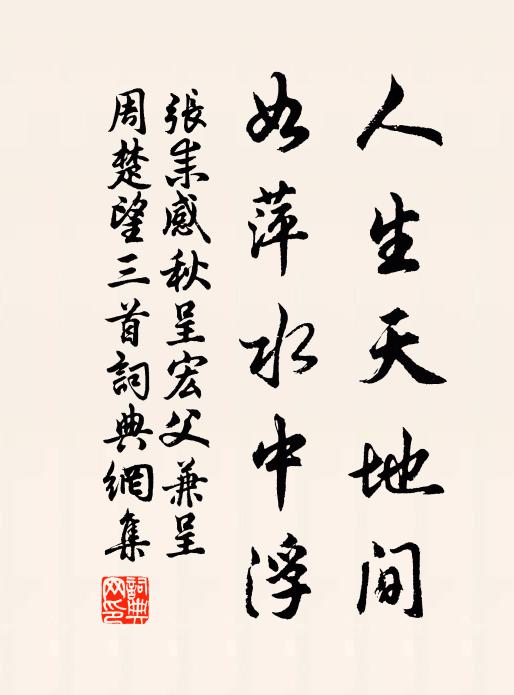 人生天地间
如萍水中浮
張耒感秋呈宏父兼呈
周楚望三首詞典網集
詞典網印